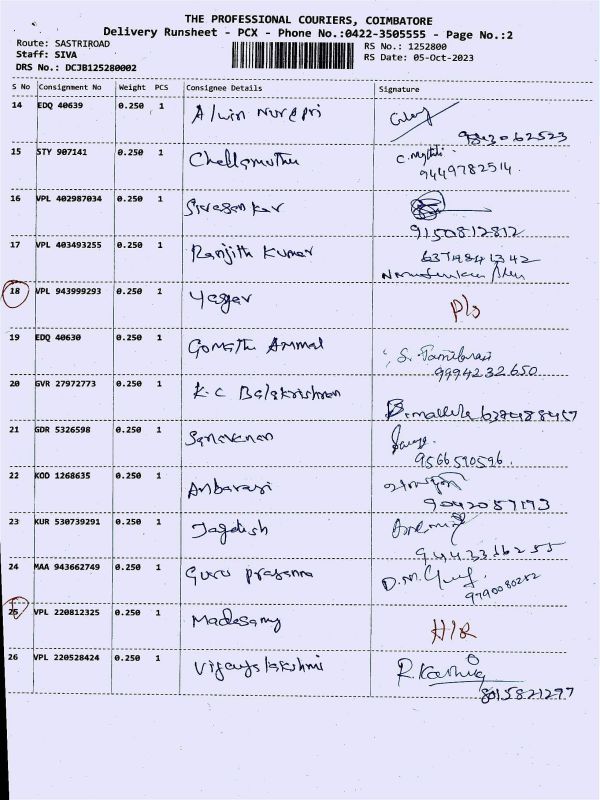 THE PROFESSIONAL COURIERS, COIMBATORE
Delivery Runsheet - PCX - Phone No.:0422-3505555 - Page No.:2
Route: SASTRIROAD RS No.: 1252800
Staff: SIVA RS Date: 05-Oct-2023
DRS No.: DCJB125280002
S No Consignment No Weight PCS Consignee Details Signature
14 EDQ 40639 0.250 1 Alwin
9843062523
15 STY 907141 0.250 1 Chellamuthu C. Mythili
9449782514.
16 VPL 402987034 0.250 1 Sivasankar
9150812812
17 VPL 403493255 0.250 1 Ranjith Kumar 6374841342
18 VPL 943999293 0.250 1
19 EDQ 40630 0.250 1 Gomathi Ammal S.
9994232650
20 GVR 27972773 0.250 1 K.C Balakrishnan
21 GDR 5326598 0.250 1 Saravanan
9566590596.
22 KOD 1268635 0.250 1 Anbarasi
9042057173
23 KUR 530739291 0.250 1 Jagdish
24 MAA 943662749 0.250 1 Guru prasanna D.M.
9790080252
25 VPL 220812325 0.250 1 Madasamy
26 VPL 220528424 0.250 1 Vijayalakshmi R. Karthig
8015821297